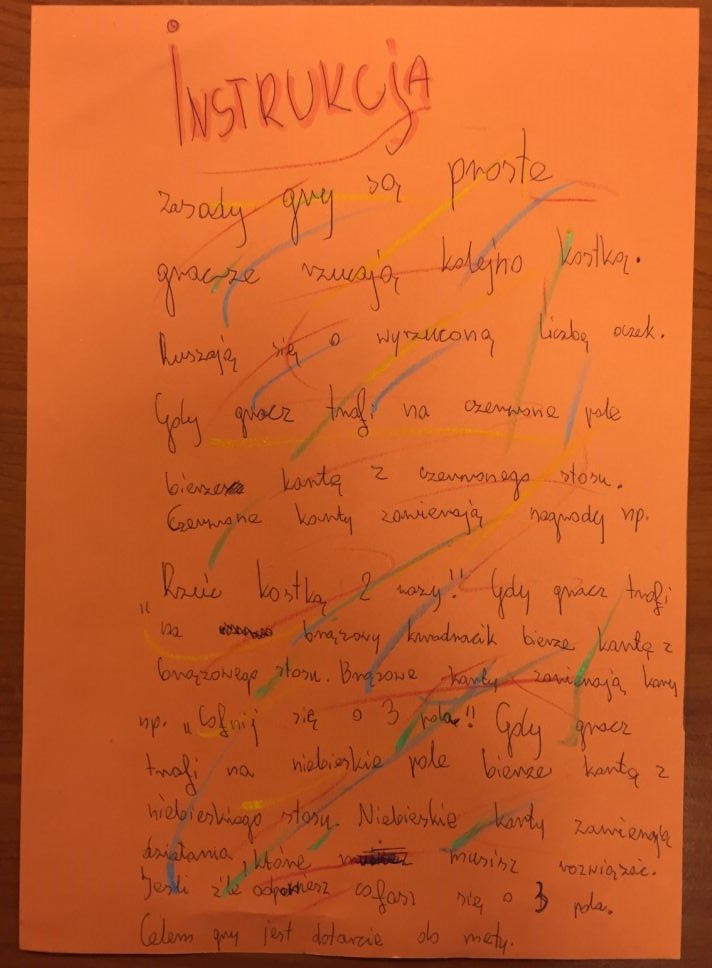 INSTRUKCJA
zasady gry są proste
gracze rzucają kolejno kostką.
Ruszają się o wyrzuconą liczbę oczek.
Gdy gracz trafi na czerwone pole
bierze kartę z czerwonego stosu.
Czerwone karty zawierają nagrody np.
„Rzuć kostką 2 razy!! Gdy gracz trafi
na brązowy kwadracik bierze kartę z
brązowego stosu. Brązowe karty zawierają kary
np. „Cofnij się o 3 pola"!! Gdy gracz
trafi na niebieskie pole bierze kartę z
niebieskiego stosu. Niebieskie karty zawierają
działania, które musisz rozwiązać.
Jeśli źle odpowiesz cofasz się o 3 pola.
Celem gry jest dotarcie do mety.